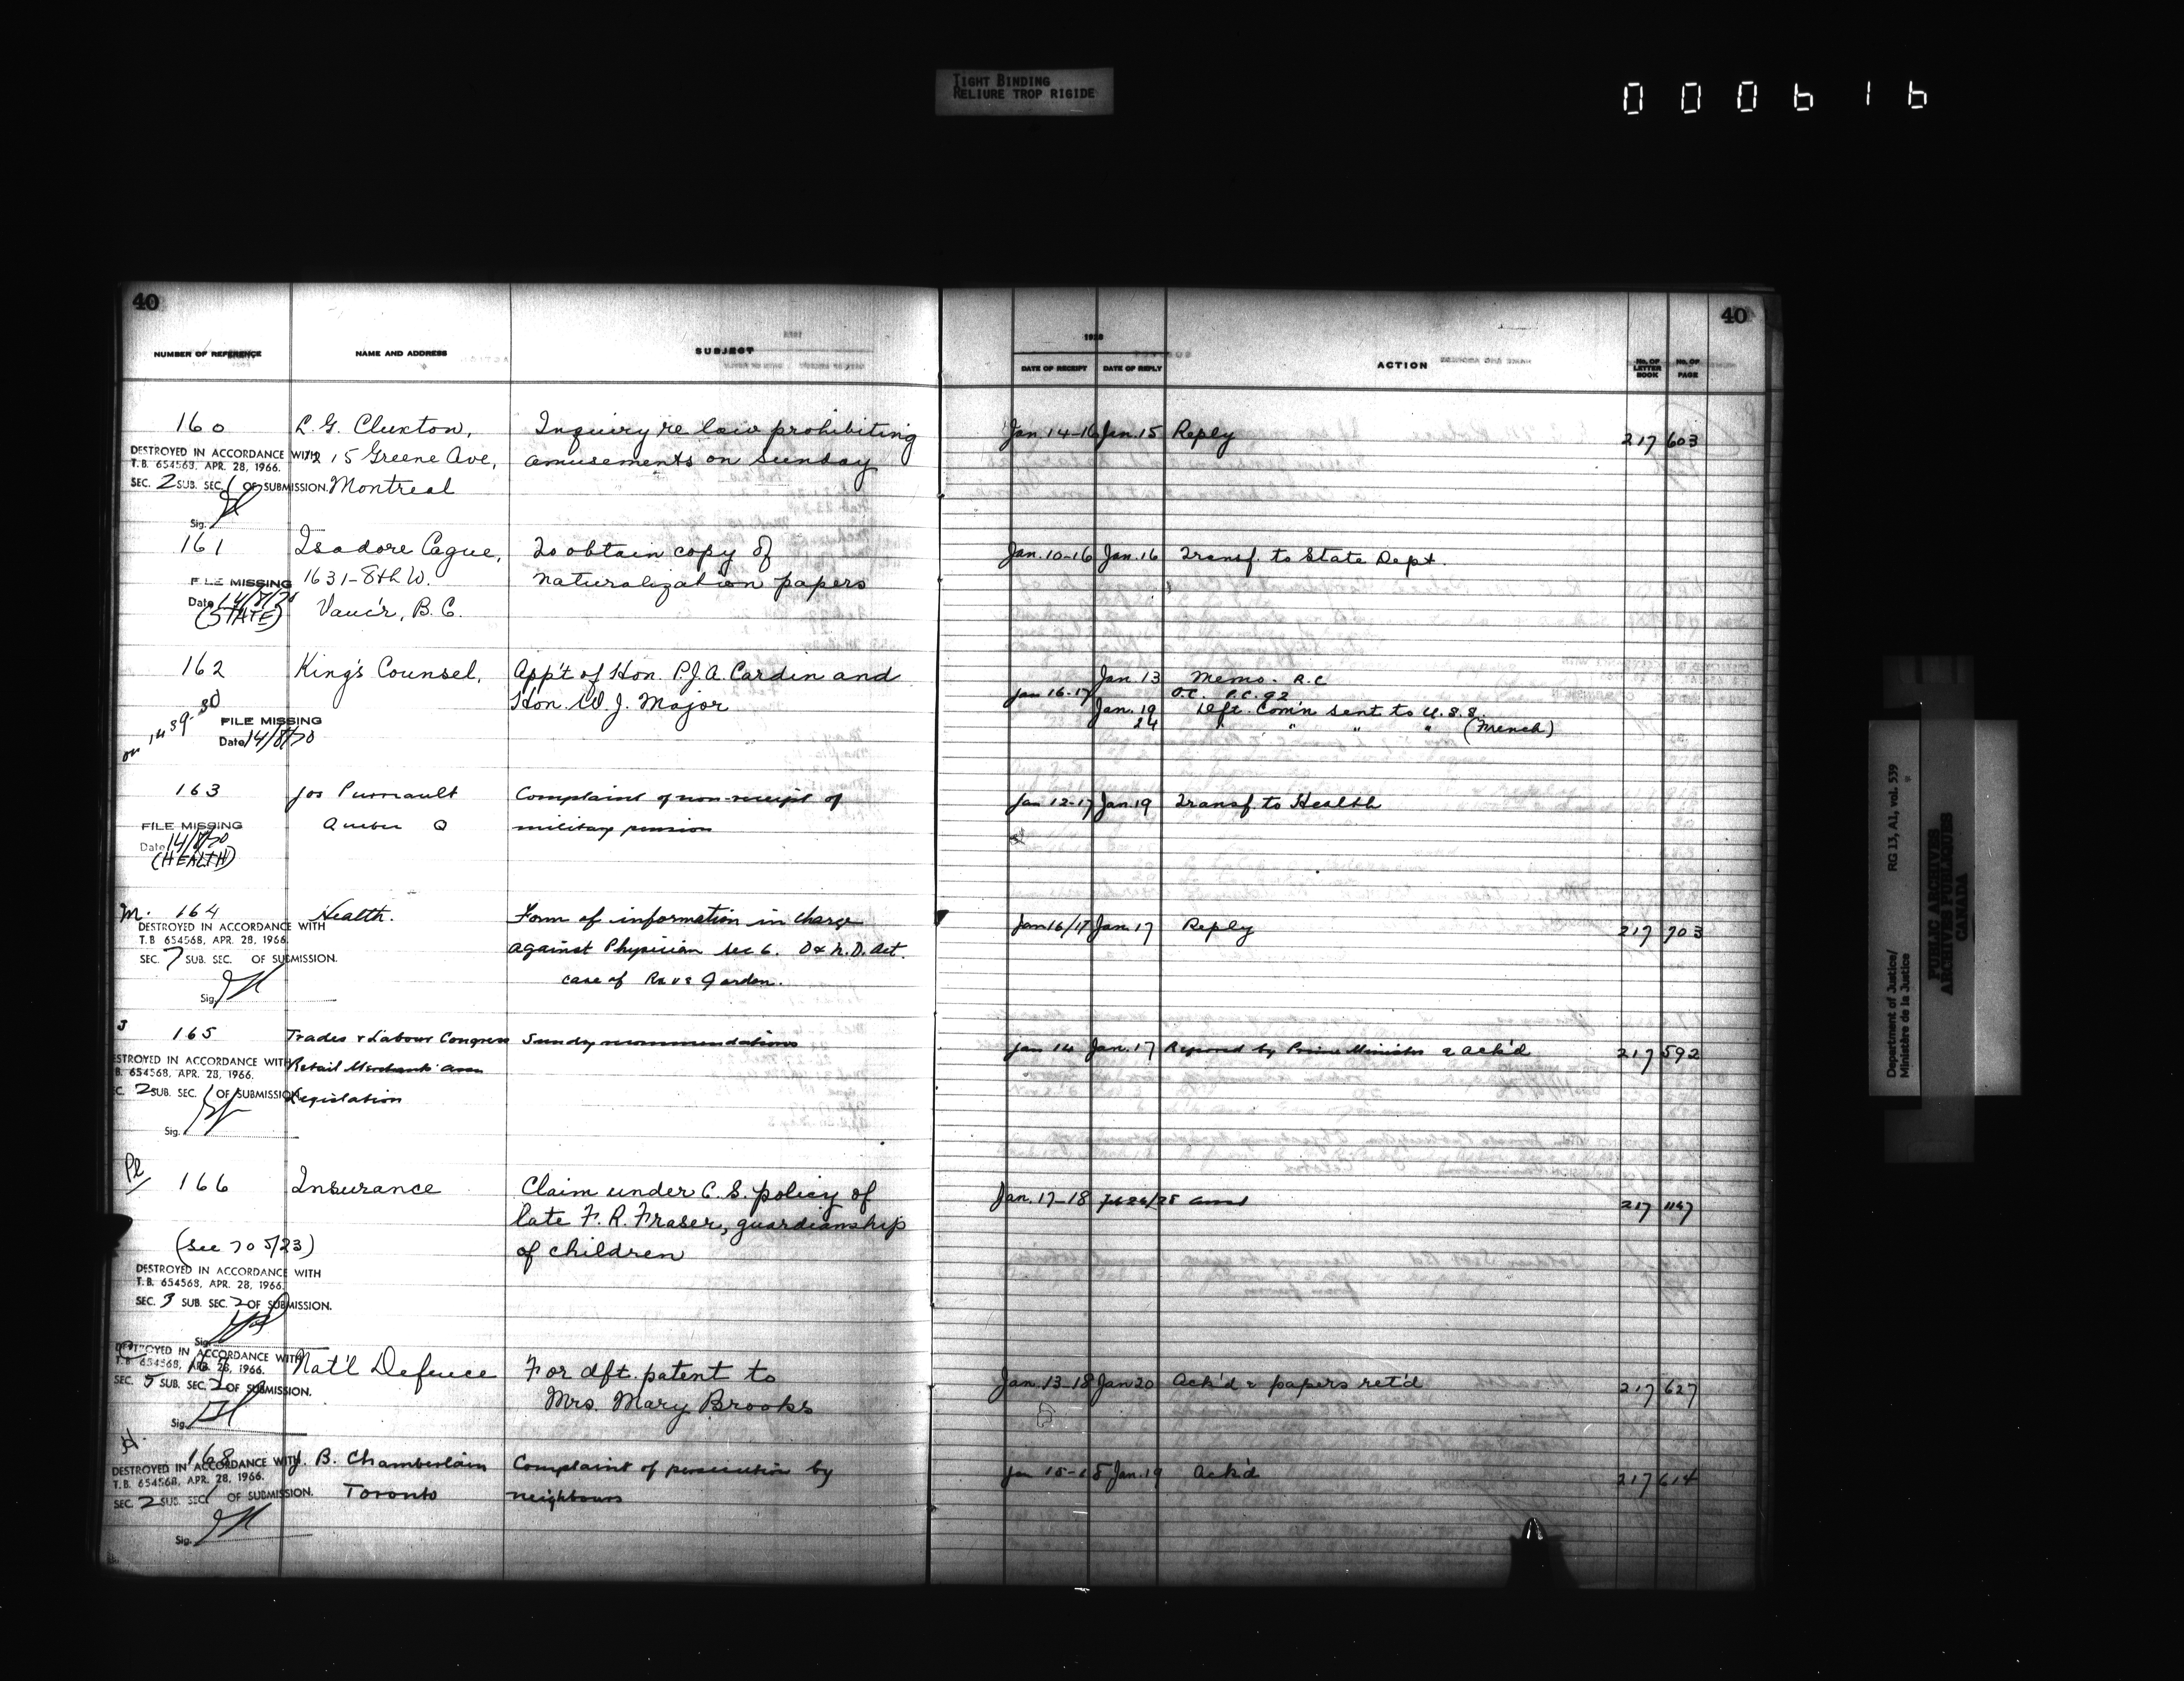 TIGHT BINDING
RELIURE TROP RIGIDE
000616
40
NUMBER OF REFERENCE NAME AND ADDRESS SUBJECT
1928
DATE OF RECEIPT DATE OF REPLY ACTION No. OF LETTER BOOK No. OF PAGE
40
160 L. G. Cluxton, Inquiry re law prohibiting Jan. 14-16 Jan. 15 Reply 217 603
DESTROYED IN ACCORDANCE WITH 1215 Greene Ave, amusements on Sunday
T.B. 654568, APR. 28, 1966.
SEC. 2 SUB. SEC. 1 OF SUBMISSION. Montreal
Sig.
161 Isadore Cague, To obtain copy of Jan. 10-16 Jan. 16 Transf. to State Dept.
FILE MISSING 1631-8th W. naturalization papers
Date 14/8/70 Vanc'r, B.C.
(STATE)
162 King's Counsel, App't of Hon. P.J.A. Cardin and Jan. 13 Memo. R.C
Hon. W. J. Major Jan 16-17 O.C. P.C. 92
Jan. 19 Dft. Com'n sent to U.S.S.
24 " " " " (French)
on 1439-30 FILE MISSING
Date 14/8/70
163 Jos Complaint of non-receipt of Jan 12-17 Jan. 19 Transf. to Health
Quebec Q military pension
FILE MISSING
Date 14/8/70
(HEALTH)
M. 164 Health. Form of information in charge Jan 16/17 Jan. 17 Reply 217 703
DESTROYED IN ACCORDANCE WITH against Physician sec 6. O & N. D. Act.
T.B. 654568, APR. 28, 1966. case of Rex vs Gordon.
SEC. 7 SUB. SEC. OF SUBMISSION.
Sig.
J 165 Trades & Labour Congress Sundry recommendations Jan 14 Jan. 17 by Prime Minister & ack'd 217 592
DESTROYED IN ACCORDANCE WITH Retail Merchants' Assn
B. 654568, APR. 28, 1966.
C. 2 SUB. SEC. 1 OF SUBMISSION. Legislation
Sig.
Pl 166 Insurance Claim under C.S. policy of Jan. 17-18 Feb 26/28 217 1167
late F. R. Fraser, guardianship
(See 705/23) of children
DESTROYED IN ACCORDANCE WITH
T.B. 654568, APR. 28, 1966.
SEC. 3 SUB. SEC. 2 OF SUBMISSION.
Sig.
DESTROYED IN ACCORDANCE WITH
T.B. 654568, APR. 28, 1966. 167 Nat'l Defence For dft. patent to Jan. 13-18 Jan 20 Ack'd & papers ret'd 217 627
SEC. 5 SUB. SEC. 2 OF SUBMISSION. Mrs. Mary Brooks
Sig.
168 J. B. Chamberlain Complaint of persecution by Jan 15-18 Jan. 19 Ack'd 217 614
DESTROYED IN ACCORDANCE WITH
T.B. 654568, APR. 28, 1966. Toronto neighbours
SEC. 2 SUB. SEC. 1 OF SUBMISSION.
Sig.
Department of Justice/ RG 13, A1, vol. 539
Ministère de la Justice
PUBLIC ARCHIVES
ARCHIVES PUBLIQUES
CANADA